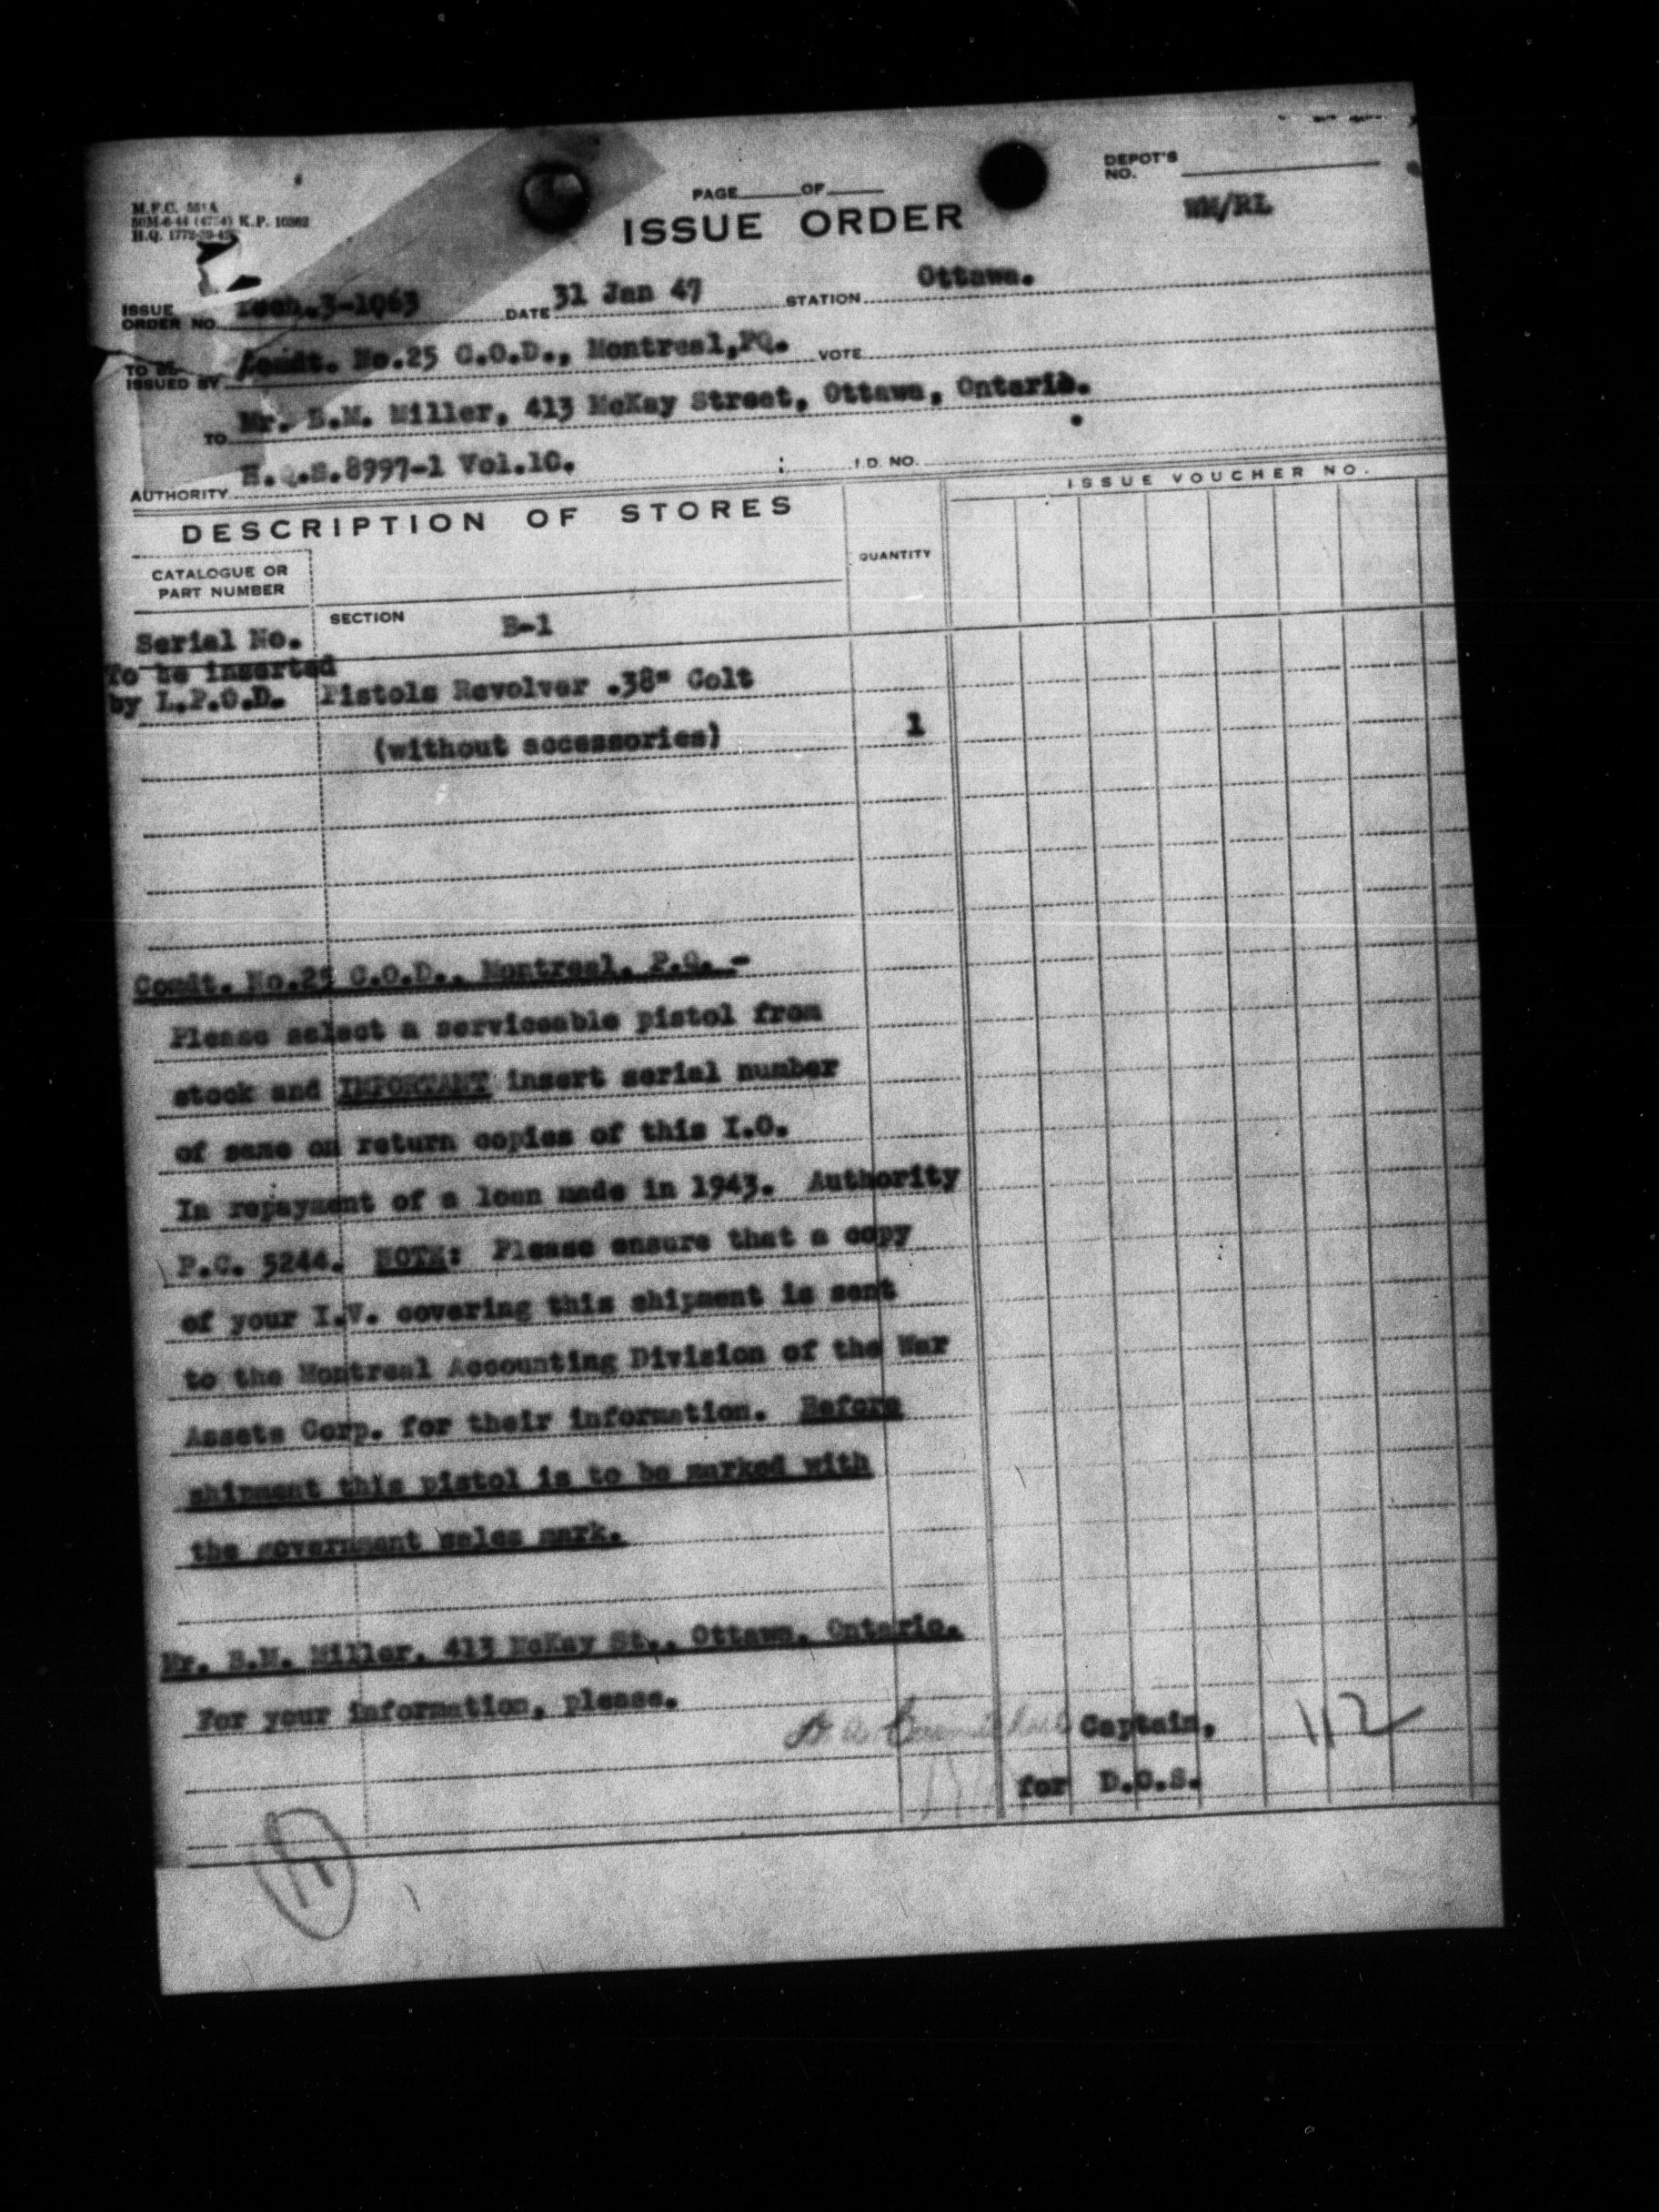 DEPOT'S
NO.
PAGE OF
M.F.C. 551A
K.P. 10862
H.Q.
ISSUE ORDER
WM/RL
ISSUE
ORDER NO. 3-1063 DATE 31 Jan 47 STATION Ottawa.
TO BE
ISSUED BY Comdt. No.25 C.O.D., Montreal,PQ. VOTE
TO Mr. B.M. Miller, 413 McKay Street, Ottawa, Ontario.
AUTHORITY H.Q.S.8997-1 Vol.10. I.D. NO.
ISSUE VOUCHER NO.
DESCRIPTION OF STORES
QUANTITY
CATALOGUE OR
PART NUMBER
SECTION B-1
Serial No.
To be inserted
by L.P.O.D. Pistols Revolver .38" Colt
(without accessories) 1
Comdt. No.25 C.O.D., Montreal, P.Q. -
Please select a serviceable pistol from
stock and IMPORTANT insert serial number
of same on return copies of this I.O.
In repayment of a loan made in 1943. Authority
P.C. 5244. NOTE: Please ensure that a copy
of your I.V. covering this shipment is sent
to the Montreal Accounting Division of the War
Assets Corp. for their information. Before
shipment this pistol is to be marked with
the government sales mark.
Mr. B.M. Miller, 413 McKay St., Ottawa, Ontario.
For your information, please.
Captain, 112
for D.O.S.